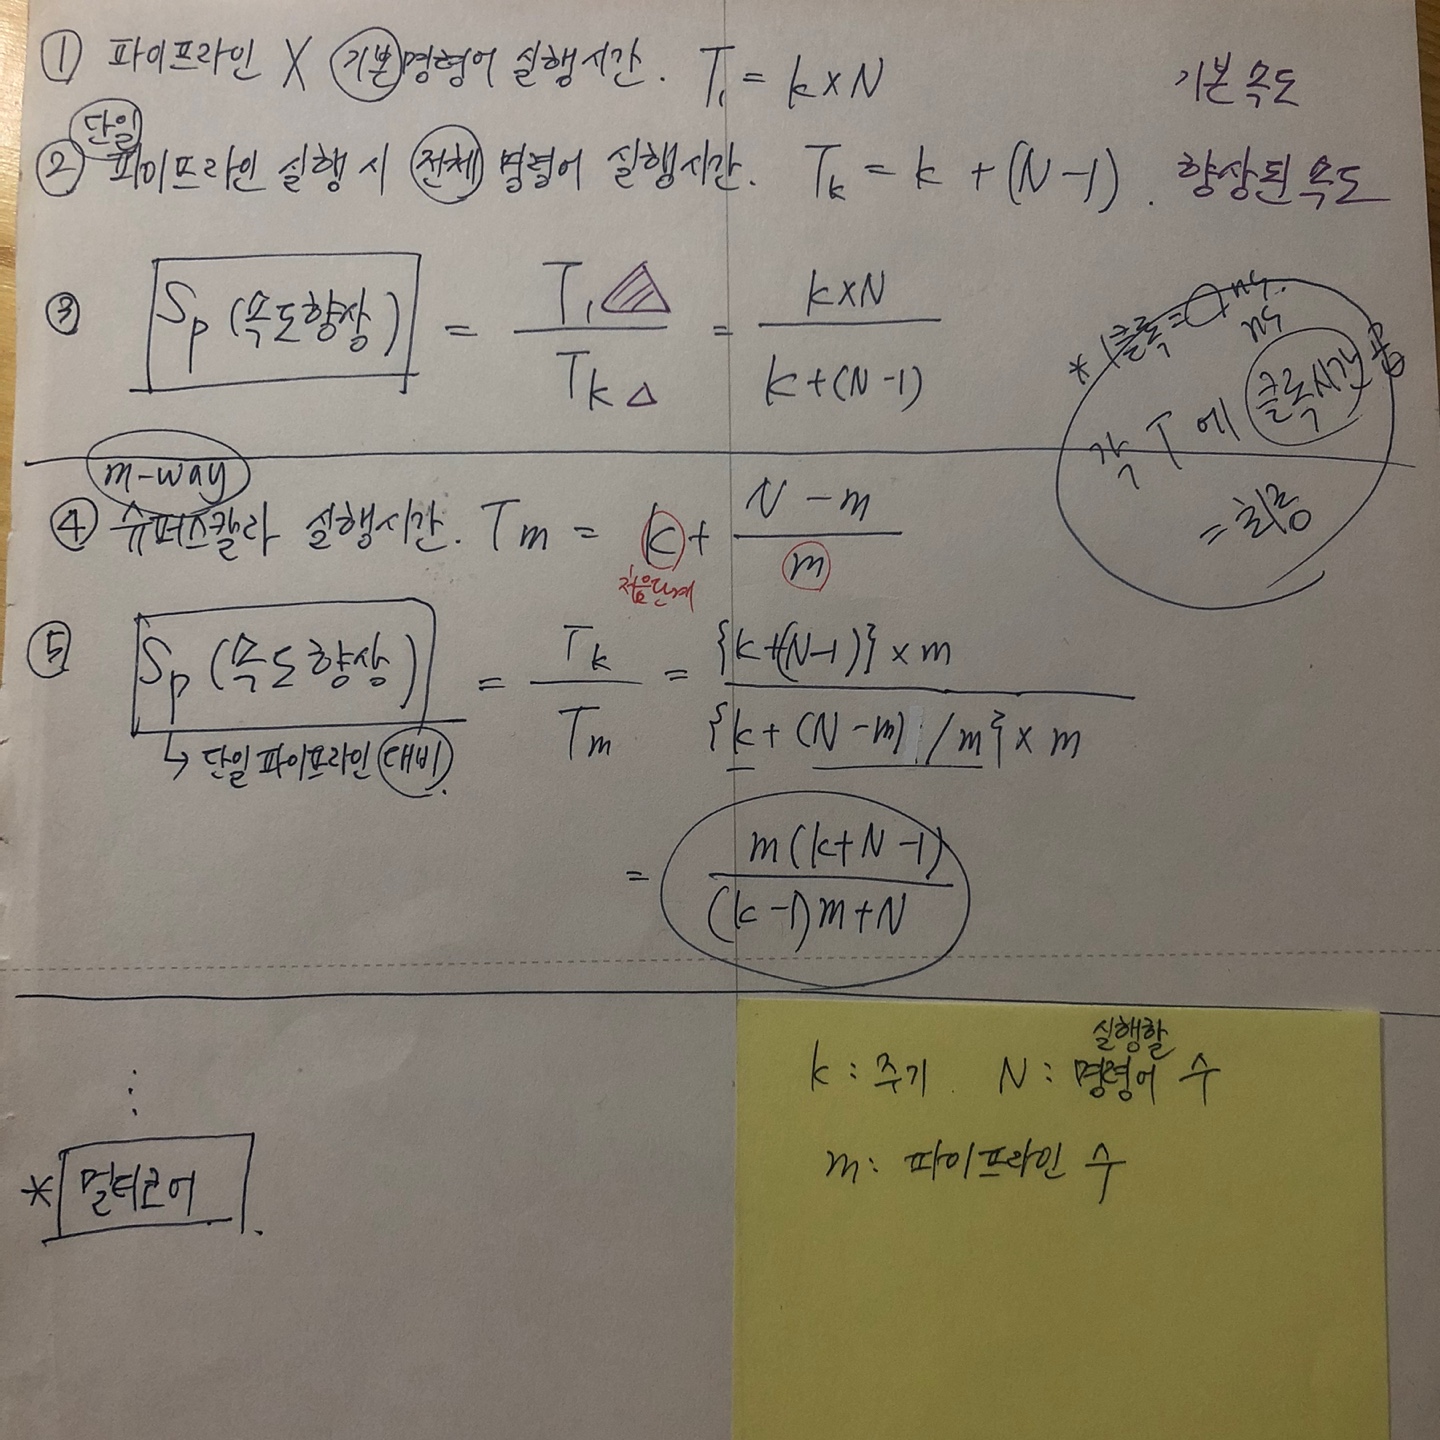 ① 파이프라인 X 기본 명령어 실행시간. T₁ = k×N 기본 속도
단일
② 파이프라인 실행 시 전체 명령어 실행시간. Tₖ = k + (N-1). 향상된 속도
③ Sp (속도향상) = T₁ / Tₖ = k×N / k+(N-1)
* 1클록 = ns.
ns
각 T에 클록시간 곱
= 최종
m-way
④ 슈퍼스칼라 실행시간. Tm = k + N-m / m
첫음단계
⑤ Sp (속도향상) = Tₖ / Tm = {k+(N-1)} × m / {k+(N-m)/m} × m
↳ 단일 파이프라인 대비.
= m(k+N-1) / (k-1)m+N
⋮
* 멀티코어.
실행할
k : 주기. N : 명령어 수
m : 파이프라인 수